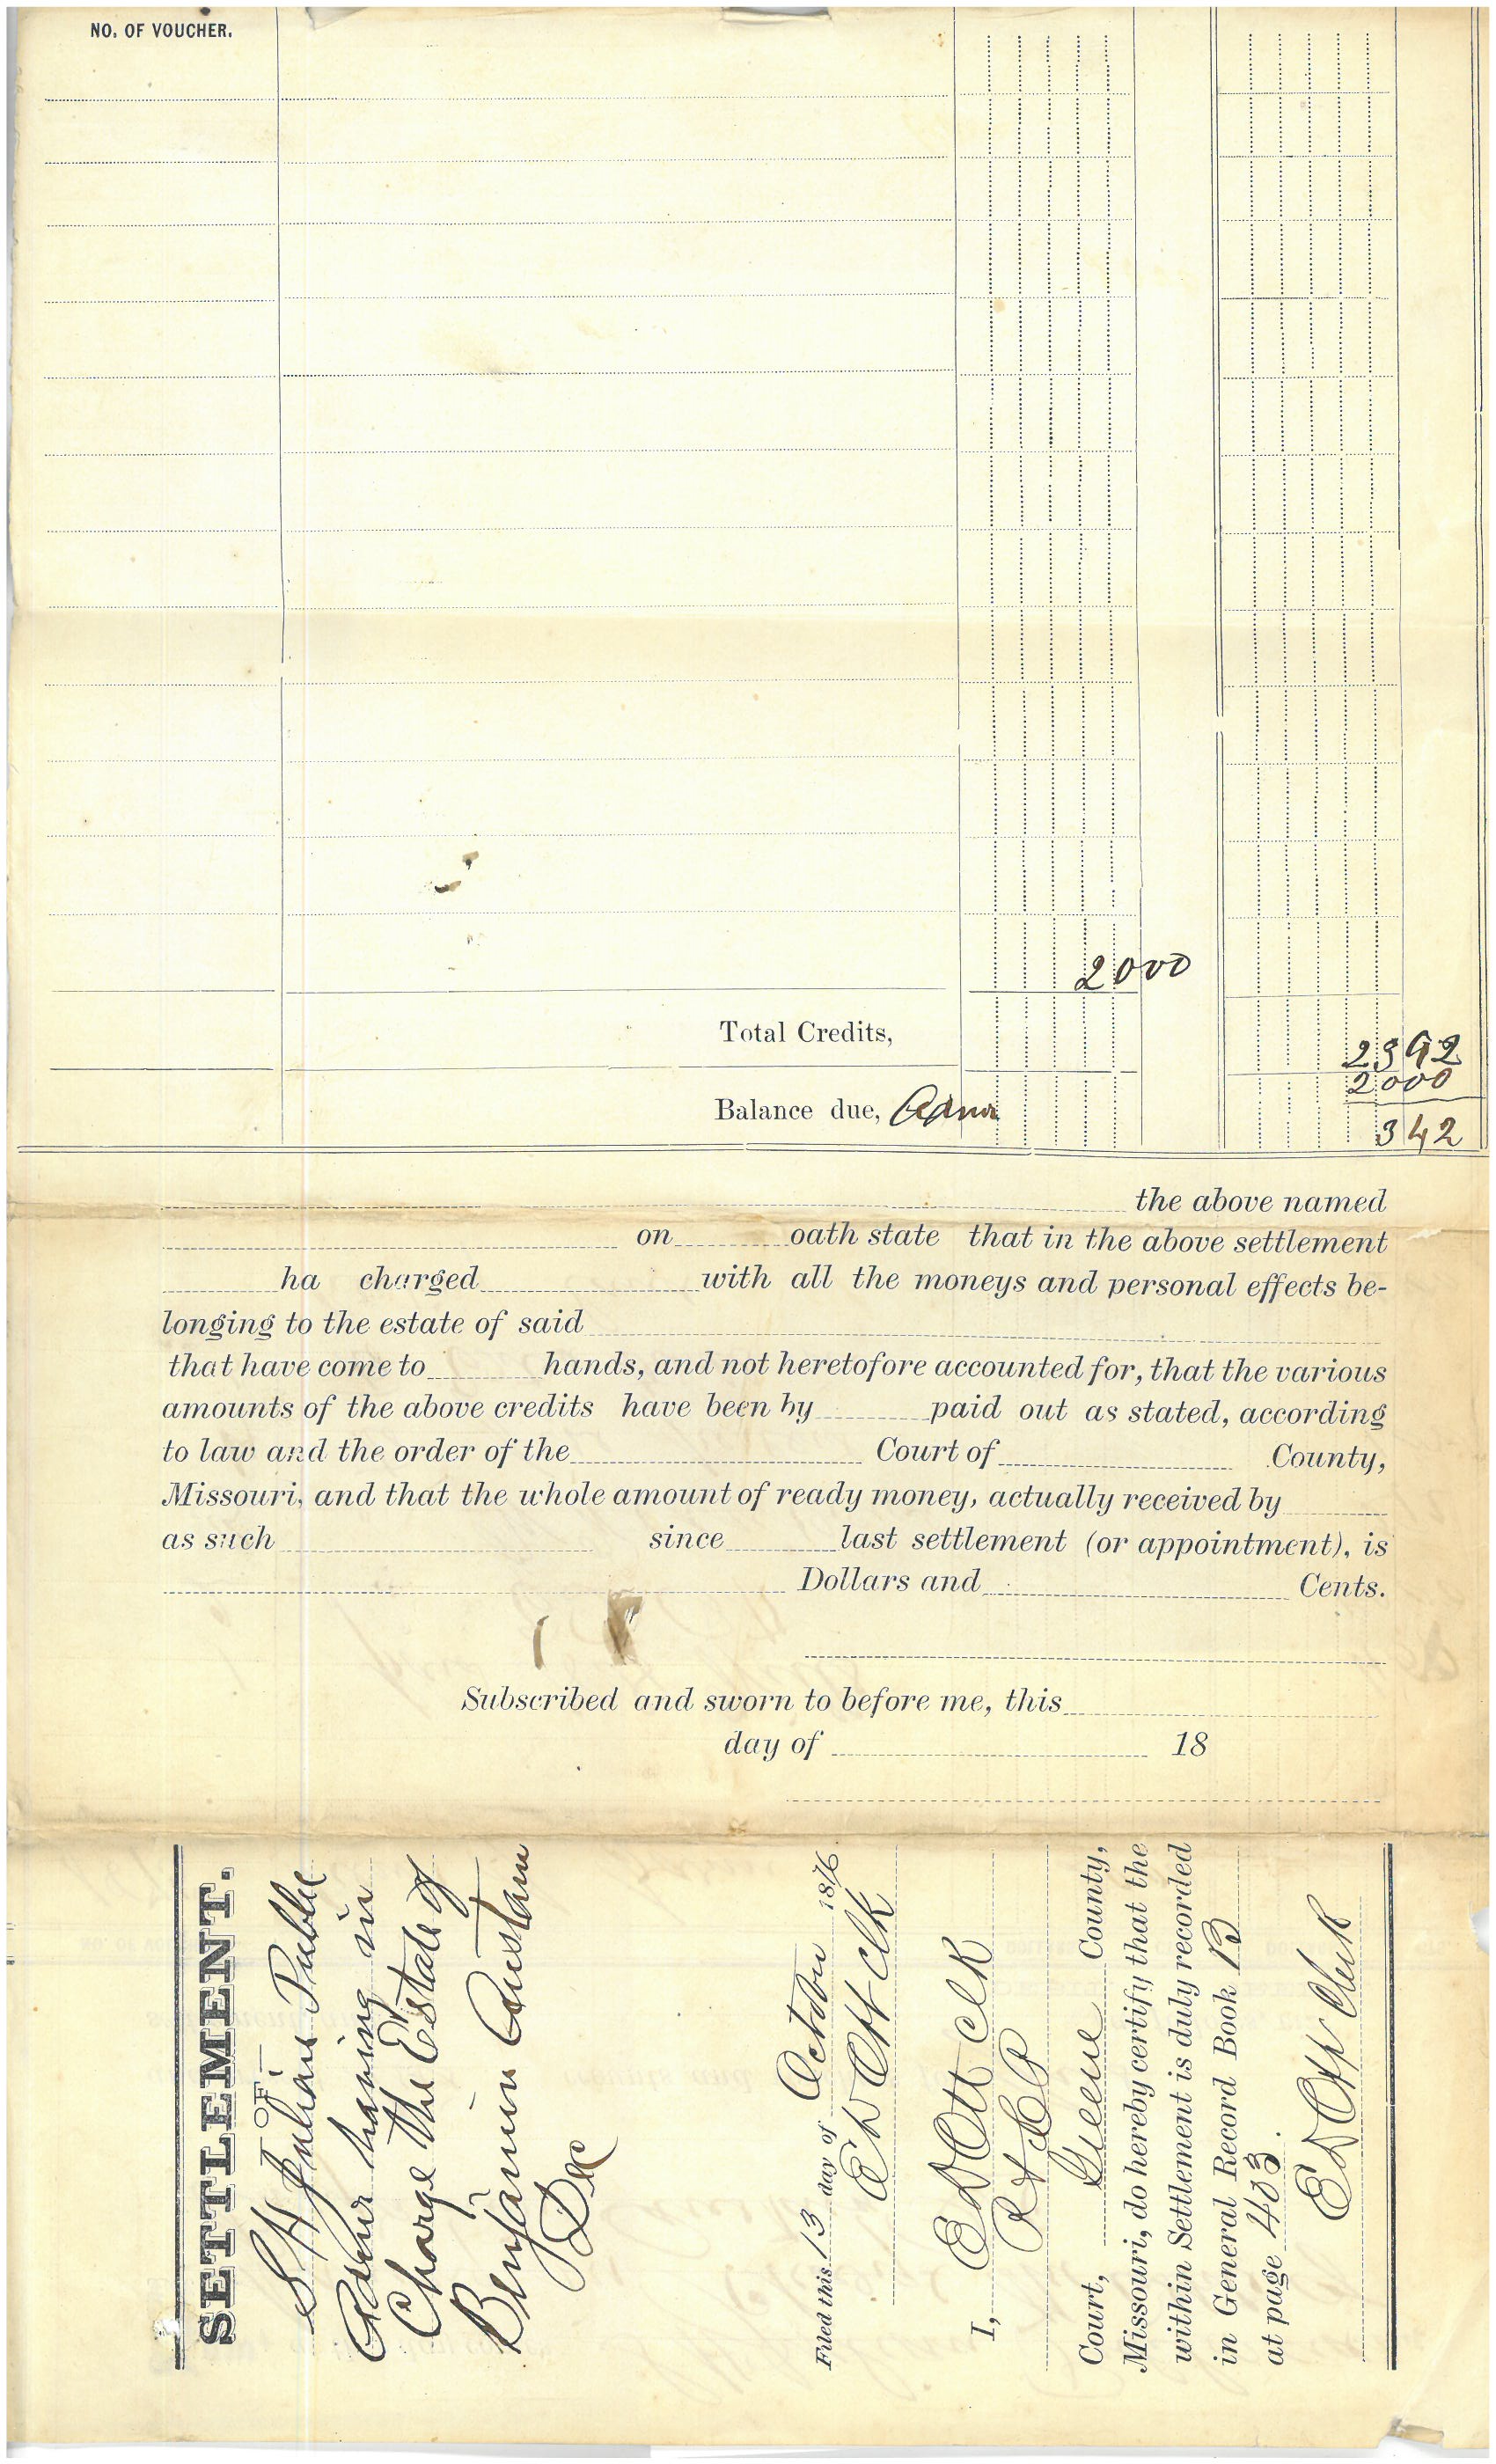 NO. OF VOUCHER.
2000
Total Credits,
2392
2000
Balance due, Admr
342
the above named
on oath state that in the above settlement
ha charged with all the moneys and personal effects be-
longing to the estate of said
that have come to hands, and not heretofore accounted for, that the various
amounts of the above credits have been by paid out as stated, according
to law and the order of the Court of County,
Missouri, and that the whole amount of ready money, actually received by
as such since last settlement (or appointment), is
Dollars and Cents.
Subscribed and sworn to before me, this
day of 18
SETTLEMENT.
OF
S H Julian Public
Admr having in
Charge the Estate of
Benjamin Austan
Dec
Filed this 13 day of October 1876
E D Ott Clk
I, E D Ott Clk
Court, Greene County,
Missouri, do hereby certify that the
within Settlement is duly recorded
in General Record Book B
at page 403.
E D Ott Clerk